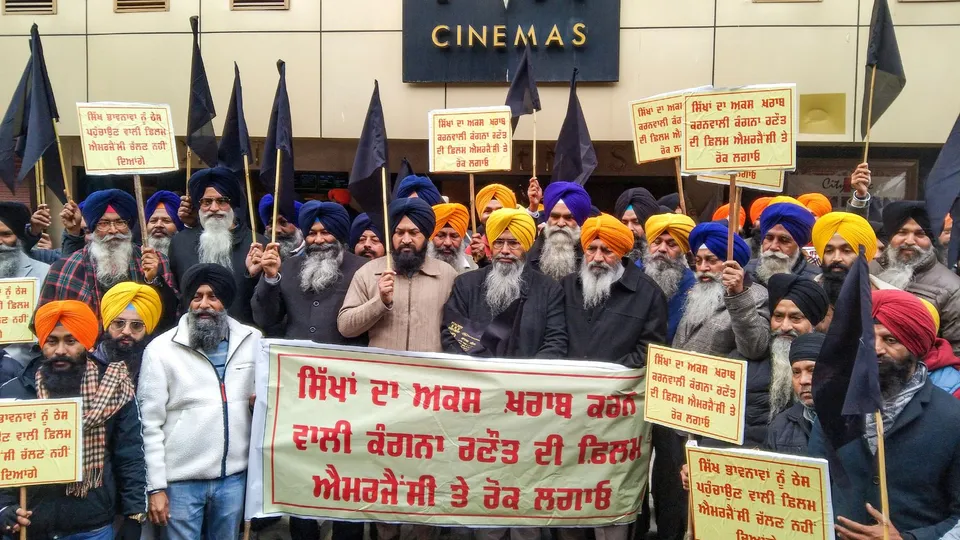 CINEMAS
ਸਿੱਖ ਭਾਵਨਾਵਾਂ ਨੂੰ ਠੇਸ
ਪਹੁੰਚਾਉਣ ਵਾਲੀ ਫ਼ਿਲਮ
ਐਮਰਜੈਂਸੀ ਚੱਲਣ ਨਹੀਂ
ਦਿਆਂਗੇ
ਸਿੱਖਾਂ ਦਾ ਅਕਸ ਖ਼ਰਾਬ
ਕਰਨਵਾਲੀ ਕੰਗਨਾ ਰਣੌਤ
ਦੀ ਫ਼ਿਲਮ ਐਮਰਜੈਂਸੀ ਤੇ
ਰੋਕ ਲਗਾਓ
ਸਿੱਖਾਂ ਦਾ ਅਕਸ ਖ਼ਰਾਬ
ਕਰਨਵਾਲੀ ਕੰਗਨਾ ਰਣੌਤ
ਦੀ ਫ਼ਿਲਮ ਐਮਰਜੈਂਸੀ ਤੇ
ਰੋਕ ਲਗਾਓ
ਸਿੱਖਾਂ ਦਾ ਅਕਸ ਖ਼ਰਾਬ ਕਰਨ
ਵਾਲੀ ਕੰਗਨਾ ਰਣੌਤ ਦੀ ਫ਼ਿਲਮ
ਐਮਰਜੈਂਸੀ ਤੇ ਰੋਕ ਲਗਾਓ
ਸਿੱਖਾਂ ਦਾ ਅਕਸ ਖ਼ਰਾਬ
ਕਰਨਵਾਲੀ ਕੰਗਨਾ ਰਣੌਤ
ਦੀ ਫ਼ਿਲਮ ਐਮਰਜੈਂਸੀ ਤੇ
ਰੋਕ ਲਗਾਓ
ਭਾਵਨਾਵਾਂ ਨੂੰ ਠੇਸ
ਵਾਲੀ ਫ਼ਿਲਮ
ਚੱਲਣ ਨਹੀਂ
ਦਿਆਂਗੇ
ਸਿੱਖ ਭਾਵਨਾਵਾਂ ਨੂੰ ਠੇਸ
ਪਹੁੰਚਾਉਣ ਵਾਲੀ ਫ਼ਿਲਮ
ਐਮਰਜੈਂਸੀ ਚੱਲਣ ਨਹੀਂ